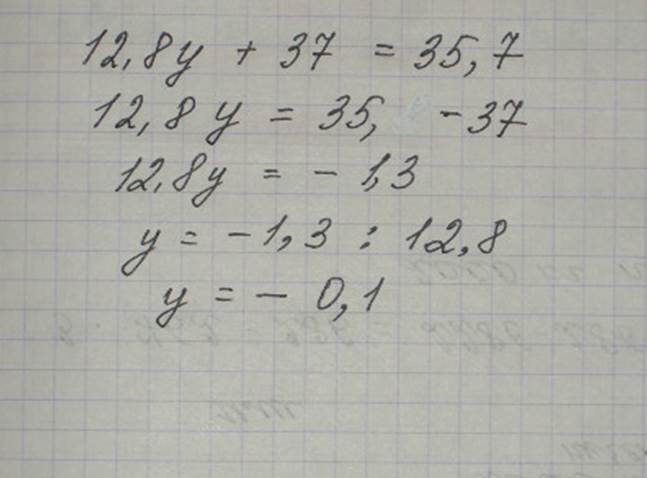 12,8y + 37 = 35,7
12,8y = 35, -37
12,8y = - 1,3
y = -1,3 : 12,8
y = - 0,1